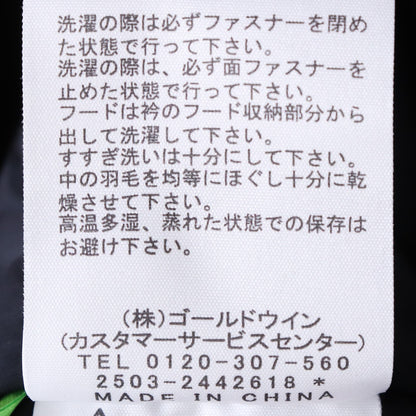 洗濯の際は必ずファスナーを閉め
た状態で行って下さい。
洗濯の際は、必ず面ファスナーを
止めた状態で行って下さい。
フードは衿のフード収納部分から
出して洗濯して下さい。
すすぎ洗いは十分にして下さい。
中の羽毛を均等にほぐし十分に乾
燥させて下さい。
高温多湿、蒸れた状態での保存は
お避け下さい。
(株)ゴールドウイン
(カスタマーサービスセンター)
TEL 0120-307-560
2503-2442618 *
MADE IN CHINA